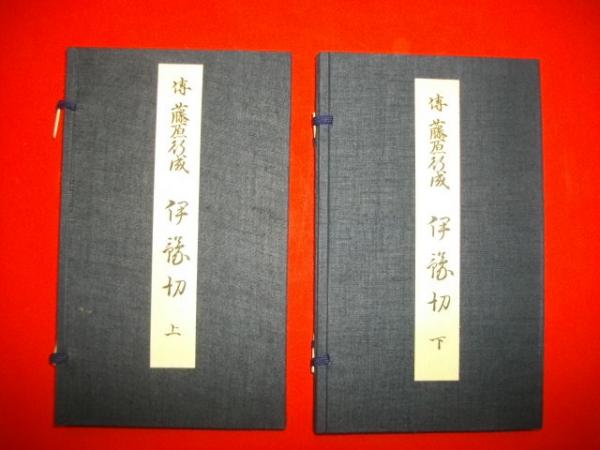 傳 藤原行成 伊豫切 上
傳 藤原行成 伊豫切 下